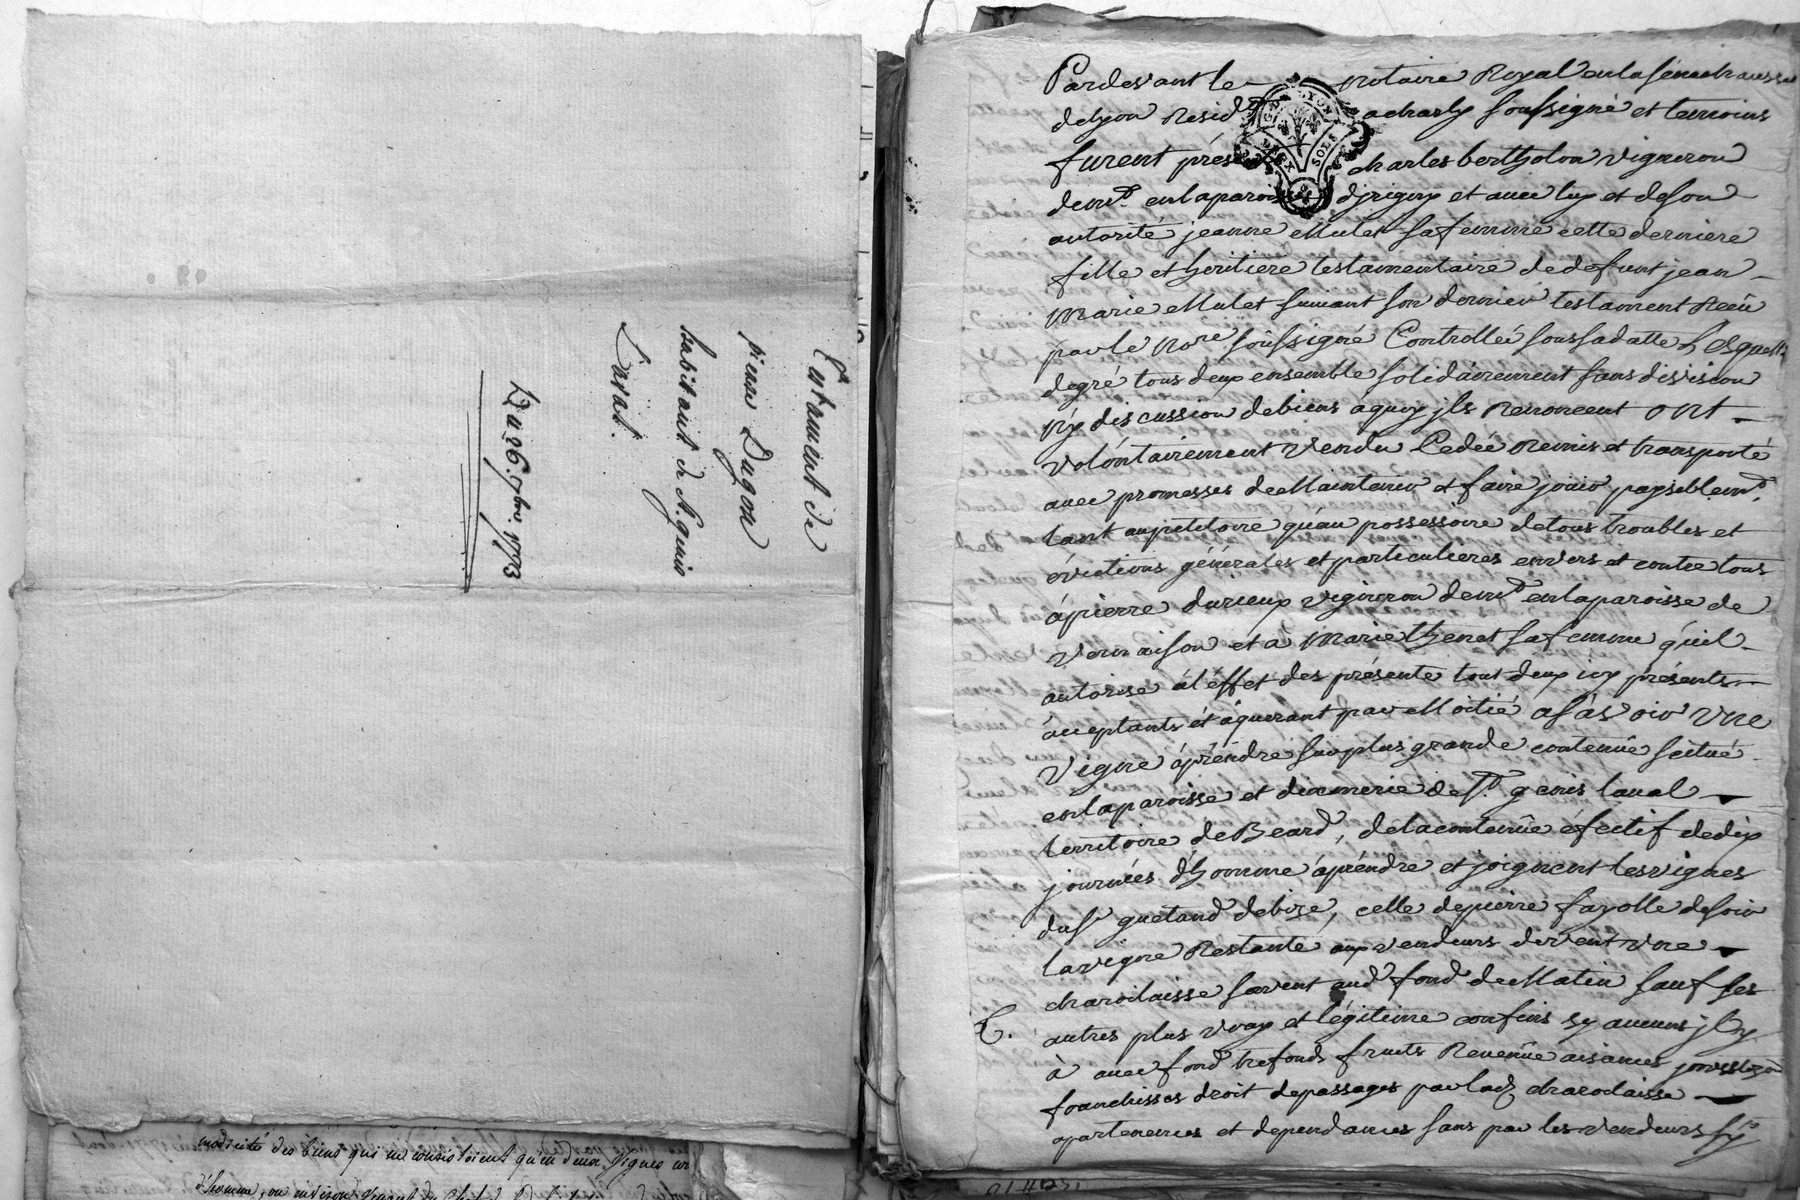 Testament de
pierre Dugon
habitant de St genis
Laval.
Du 26. 7bre. 1773
modicité des biens qui ne consistoient qu'en deux vignes
d'homme,
Pardevant le notaire Royal en la sénéchaussée
de lyon Resid.t a charly soussigné et temoins
furent présents charles bertholon vigneron
dem.t en la paroisse d'jrigny et avec luy et de son
autorité jeanne Mulet sa femme cette derniere
fille et heritiere testamentaire de defunt jean
Marie Mulet suivant son dernier testament Reçu
par le No.re soussigné Controllée sous sa datte Lesquels
degré tous deux ensemble solidairement sans division
ny discussion de biens a quoy jls Renoncent ont
volontairement vendu Cedée Remis et transporté
avec promesses de Maintenir et faire jouir paysiblem.t
tant au petitoire qu'au possessoire de tous troubles et
évictions générales et particulieres envers et contre tous
à pierre durieux vigneron dem.t en la paroisse de
vernaison et a Marie thenet sa femme qu'il
autorise à l'éffet des présente tout deux icy présents
acceptants et aquerant par Moitié asàvoir Une
Vigne à préndre sur plus grande contenüe scitué
en la paroisse et dixmerie de S.t genis laval
territoire de Beard, de la contenüe éfectif de dix
journées d'homme à préndre et joignent les vignes
du S.r guetand de bize, celle de pierre fayolle de soir
la vigne Restante aux vendeurs de vent une
charoilaisse servent aud fond de Matin sauf ses
autres plus vray et légitime confins sy aucuns jl y
à avec fond trefonds fruits Revenüe aisances
franchisses droit de passages par lad. charoilaisse
apartenences et dependances sans par les vendeurs
C.
G. DE LYON
DEUX SOLS